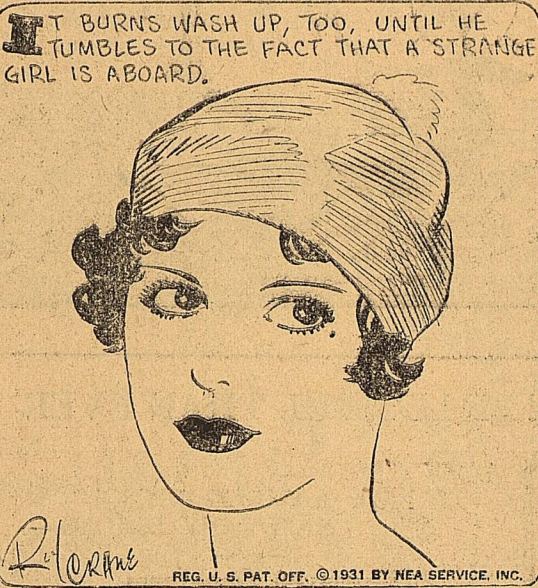 IT BURNS WASH UP, TOO, UNTIL HE
TUMBLES TO THE FACT THAT A STRANGE
GIRL IS ABOARD.
Roy CRANE
REG. U. S. PAT. OFF. © 1931 BY NEA SERVICE, INC.